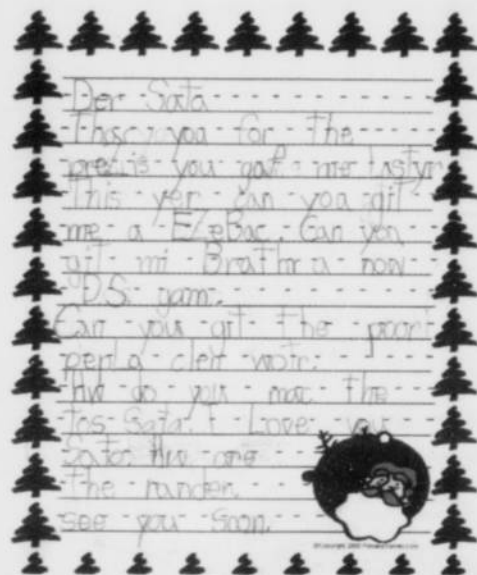 Der Sata
Thac you for the
precis you gaf me lastyr
This yer can you git
me a E/eBac. Can you
git mi Brathr a now
D.S. gam.
Can you git the poor
pepl a clen wotr.
Hw do you mac the
tos Sata. I Love you
Sata. Hw are
the rander
see you soon